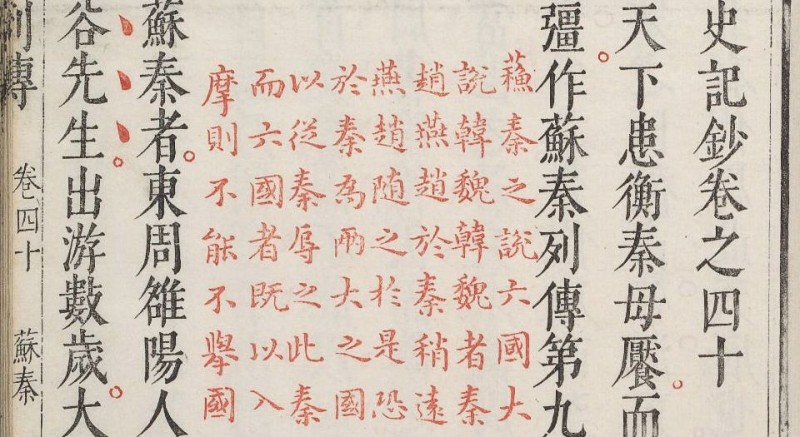 史記鈔卷之四十
天下患衡秦母饜而
彊。作蘇秦列傳第九
蘓秦之說六國大
說韓魏韓魏者秦
趙燕趙於秦稍遠
燕趙随之於是恐
於秦為兩大之國
以從秦辱之此秦
而六國者既以入
摩則不能不舉國
蘇秦者。東周雒陽人
谷先生。出游數歲。大
列傳 卷四十 蘇秦